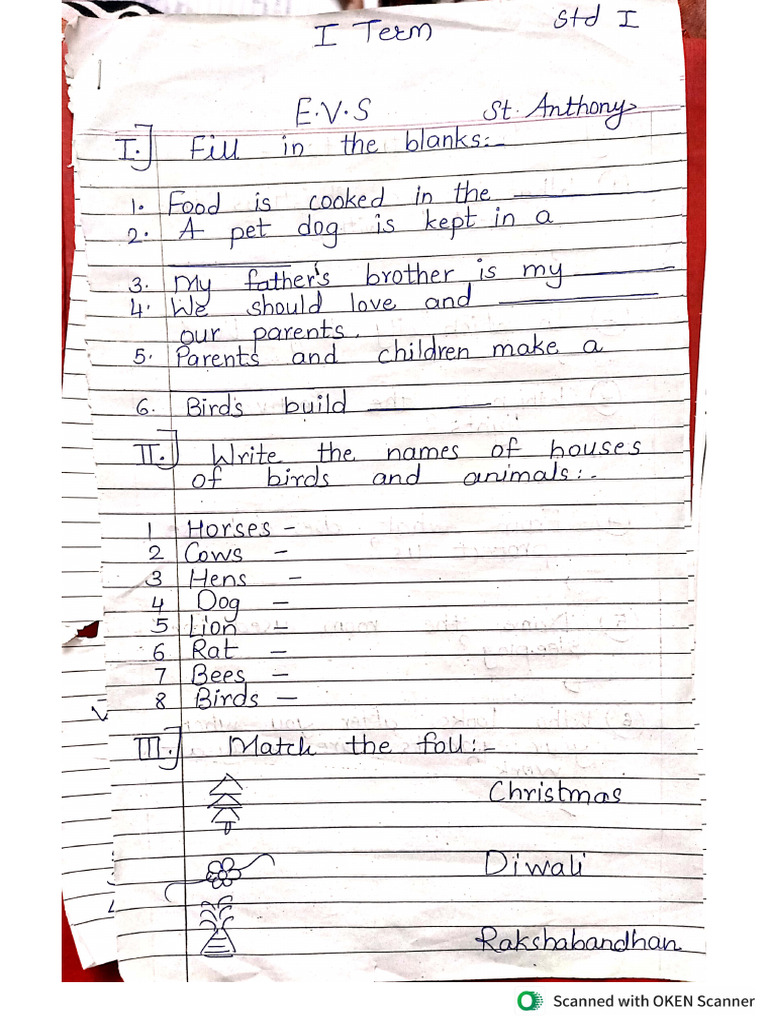 I Term
Std I
E.V.S
St. Anthony
I.] Fill in the blanks:-
1. Food is cooked in the ________
2. A pet dog is kept in a
________
3. My father's brother is my ________
4. We should love and ________
our parents.
5. Parents and children make a
6. Birds build ________
II.] Write the names of houses
of birds and animals:-
1 Horses -
2 Cows -
3 Hens -
4 Dog -
5 Lion -
6 Rat -
7 Bees -
8 Birds -
III.] Match the foll:-
Christmas
Diwali
Rakshabandhan
Scanned with OKEN Scanner